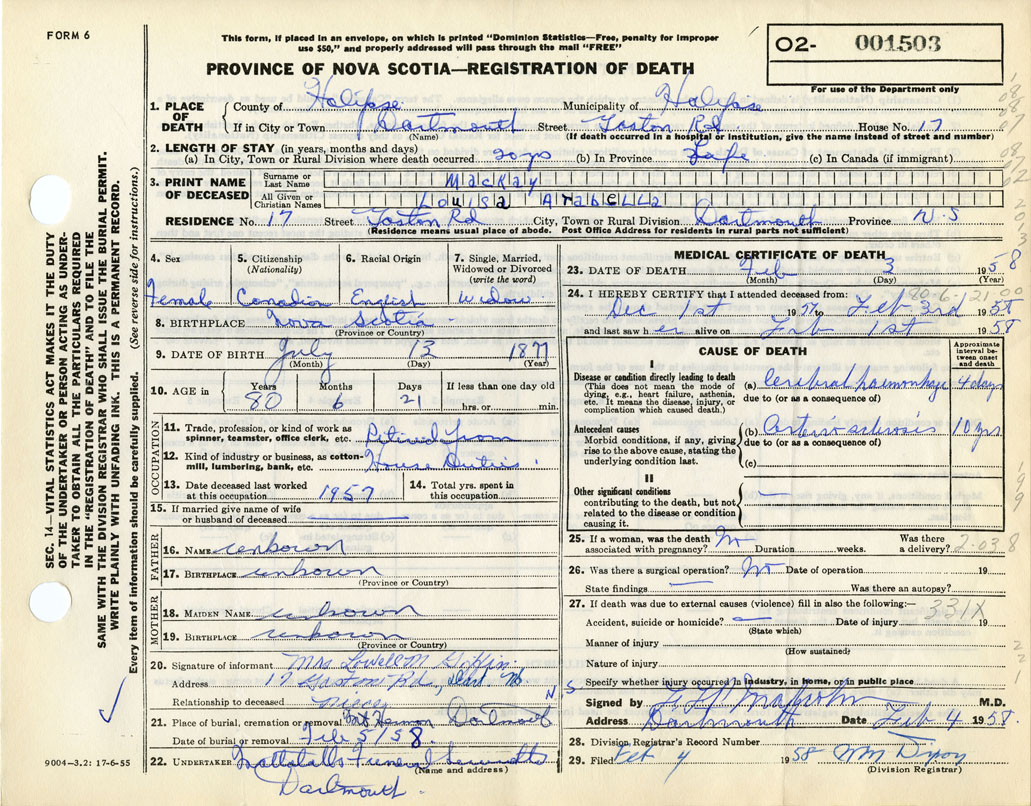 FORM 6
This form, if placed in an envelope, on which is printed "Dominion Statistics—Free, penalty for improper
use $50," and properly addressed will pass through the mail "FREE"
02- 001503
For use of the Department only
PROVINCE OF NOVA SCOTIA—REGISTRATION OF DEATH
1. PLACE OF DEATH
County of Halifax Municipality of Halifax
If in City or Town Dartmouth Street Gaston Rd. House No. 17
(Name) (If death occurred in a hospital or institution, give the name instead of street and number)
2. LENGTH OF STAY (in years, months and days)
(a) In City, Town or Rural Division where death occurred 20 yrs (b) In Province Life (c) In Canada (if immigrant)
3. PRINT NAME OF DECEASED
Surname or Last Name MacKay
All Given or Christian Names Louisa Arabella
RESIDENCE No. 17 Street Gaston Rd City, Town or Rural Division Dartmouth Province N.S
(Residence means usual place of abode. Post Office Address for residents in rural parts not sufficient)
4. Sex
Female
5. Citizenship
(Nationality)
Canadian
6. Racial Origin
English
7. Single, Married,
Widowed or Divorced
(write the word)
Widow
8. BIRTHPLACE Nova Scotia
(Province or Country)
9. DATE OF BIRTH July 13 1877
(Month) (Day) (Year)
10. AGE in
Years Months Days If less than one day old
80 6 21 hrs. or min.
OCCUPATION
11. Trade, profession, or kind of work as
spinner, teamster, office clerk, etc. Retired from
12. Kind of industry or business, as cotton-
mill, lumbering, bank, etc. House Duties
13. Date deceased last worked
at this occupation 1957
14. Total yrs. spent in
this occupation
15. If married give name of wife
or husband of deceased
FATHER
16. NAME unkown
17. BIRTHPLACE unkown
(Province or Country)
MOTHER
18. MAIDEN NAME unkown
19. BIRTHPLACE unkown
(Province or Country)
20. Signature of informant Mrs Lowell M.
Address 17 Gaston Rd, N S
Relationship to deceased niece
21. Place of burial, cremation or removal Mt Hermon Dartmouth
Date of burial or removal Feb 5/58.
22. UNDERTAKER Funeral
(Name and address)
Dartmouth
MEDICAL CERTIFICATE OF DEATH
23. DATE OF DEATH Feb 3 1958
(Month) (Day) (Year)
80-6-21-00
24. I HEREBY CERTIFY that I attended deceased from:
Dec 1st 1957 to Feb 3rd 1958
and last saw her alive on Feb 1st 1958
CAUSE OF DEATH
Approximate
interval be-
tween onset
and death
I
Disease or condition directly leading to death
(This does not mean the mode of
dying, e.g., heart failure, asthenia,
etc. It means the disease, injury, or
complication which caused death.)
(a) Cerebral haemorrhage 4 days
due to (or as a consequence of)
Antecedent causes
Morbid conditions, if any, giving
rise to the above cause, stating the
underlying condition last.
(b) Arterio sclerosis 10 yrs
due to (or as a consequence of)
(c)
II
Other significant conditions
contributing to the death, but not
related to the disease or condition
causing it.
25. If a woman, was the death
associated with pregnancy? No Duration weeks. Was there
a delivery? 2.038
26. Was there a surgical operation? No Date of operation 19
State findings Was there an autopsy?
27. If death was due to external causes (violence) fill in also the following:—
331X
Accident, suicide or homicide? Date of injury 19
(State which)
Manner of injury
(How sustained)
Nature of injury
Specify whether injury occurred in industry, in home, or in public place
Signed by M.D.
Address Dartmouth Date Feb 4 1958.
28. Division Registrar's Record Number
29. Filed Feb 4 1958 WM Dixon
(Division Registrar)
SEC. 14—VITAL STATISTICS ACT MAKES IT THE DUTY
OF THE UNDERTAKER OR PERSON ACTING AS UNDER-
TAKER TO OBTAIN ALL THE PARTICULARS REQUIRED
IN THE "REGISTRATION OF DEATH" AND TO FILE THE
SAME WITH THE DIVISION REGISTRAR WHO SHALL ISSUE THE BURIAL PERMIT.
WRITE PLAINLY WITH UNFADING INK. THIS IS A PERMANENT RECORD.
Every item of information should be carefully supplied. (See reverse side for instructions.)
9004—3.2: 17-6-55